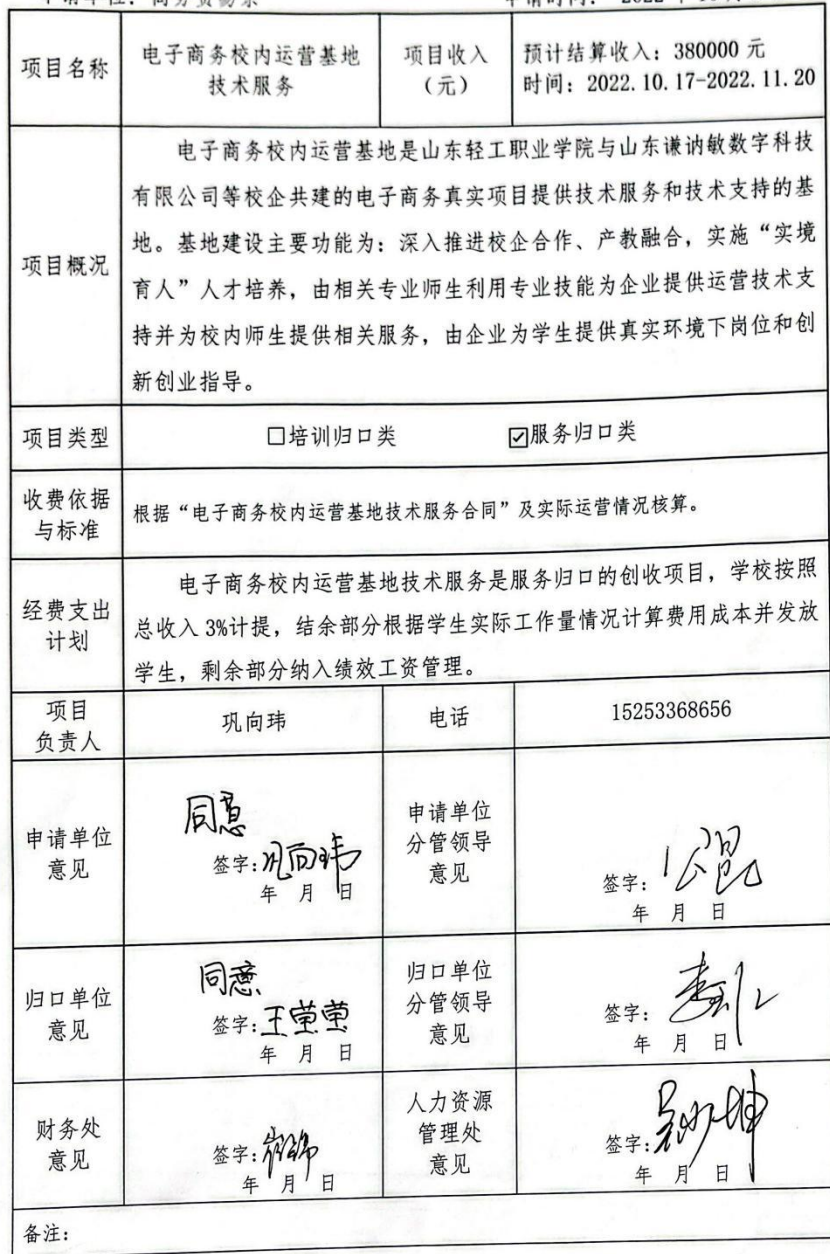 申请单位：商务贸易系 申请时间：2022 年
项目名称
电子商务校内运营基地
技术服务
项目收入
（元）
预计结算收入：380000 元
时间：2022.10.17-2022.11.20
项目概况
电子商务校内运营基地是山东轻工职业学院与山东谦讷敏数字科技
有限公司等校企共建的电子商务真实项目提供技术服务和技术支持的基
地。基地建设主要功能为：深入推进校企合作、产教融合，实施“实境
育人”人才培养，由相关专业师生利用专业技能为企业提供运营技术支
持并为校内师生提供相关服务，由企业为学生提供真实环境下岗位和创
新创业指导。
项目类型
□培训归口类 ☑服务归口类
收费依据
与标准
根据“电子商务校内运营基地技术服务合同”及实际运营情况核算。
经费支出
计划
电子商务校内运营基地技术服务是服务归口的创收项目，学校按照
总收入 3%计提，结余部分根据学生实际工作量情况计算费用成本并发放
学生，剩余部分纳入绩效工资管理。
项目
负责人
巩向玮
电话
15253368656
申请单位
意见
同意
签字：巩向玮
年 月 日
申请单位
分管领导
意见
签字：
年 月 日
归口单位
意见
同意
签字：王莹莹
年 月 日
归口单位
分管领导
意见
签字：
年 月 日
财务处
意见
签字：
年 月 日
人力资源
管理处
意见
签字：
年 月 日
备注：